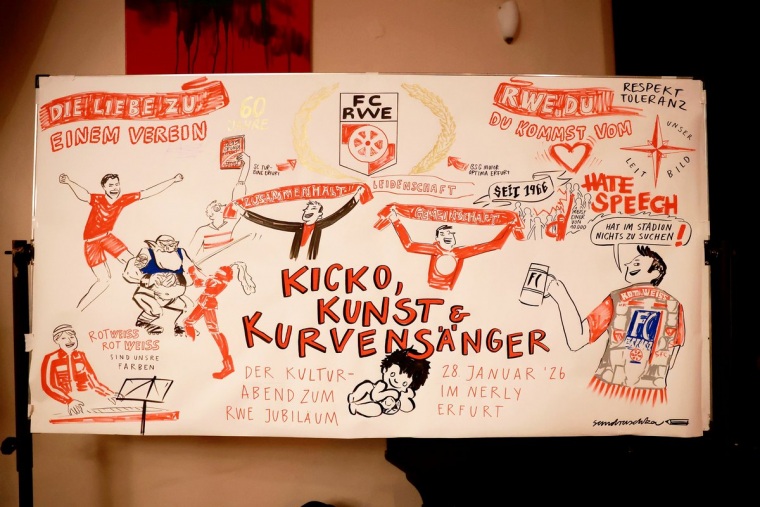 DIE LIEBE ZU
EINEM VEREIN
60
JAHRE
FC
RWE
SC TUR-
BINE ERFURT
BSG MOTOR
OPTIMA ERFURT
RWE, DU
DU KOMMST VOM
RESPEKT
TOLERANZ
UNSER
LEIT
BILD
ZUSAMMENHALT
LEIDENSCHAFT
SEIT 1966
HATE
SPEECH
HAT IM STADION
NICHTS ZU SUCHEN!
KICKO,
KUNST &
KURVENSÄNGER
ROTWEISS
ROT WEISS
SIND UNSRE
FARBEN
DER KULTUR-
ABEND ZUM
RWE JUBILÄUM
28 JANUAR '26
IM NERLY
ERFURT
FC
ROT-WEISS
FC